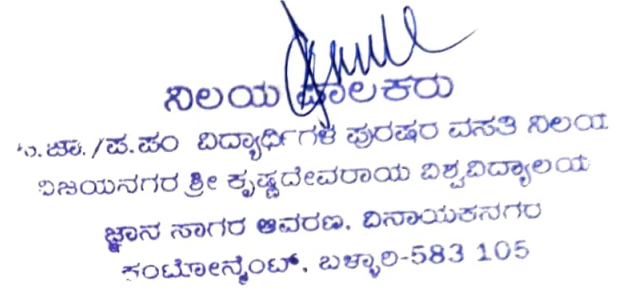 ನಿಲಯ ಪಾಲಕರು
ಪ.ಜಾ./ಪ.ಪಂ ವಿದ್ಯಾರ್ಥಿಗಳ ಪುರುಷರ ವಸತಿ ನಿಲಯ
ವಿಜಯನಗರ ಶ್ರೀ ಕೃಷ್ಣದೇವರಾಯ ವಿಶ್ವವಿದ್ಯಾಲಯ
ಜ್ಞಾನ ಸಾಗರ ಆವರಣ, ವಿನಾಯಕನಗರ
ಕಂಟೋನ್ಮೆಂಟ್, ಬಳ್ಳಾರಿ-583 105